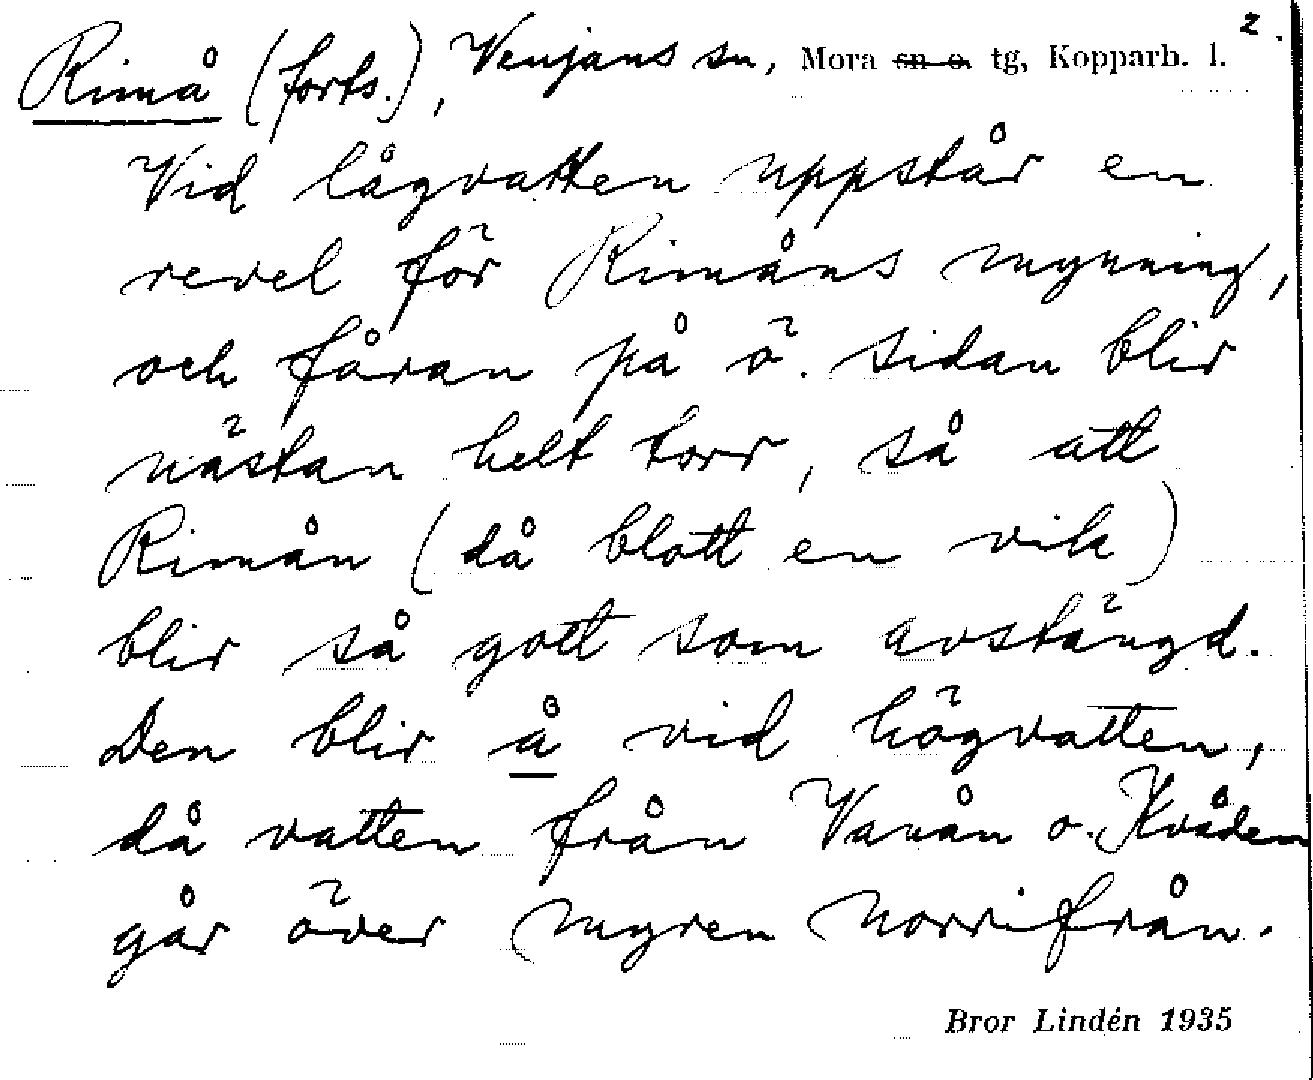 2.
Rimå (forts.), Venjans sn, Mora sn o. tg, Kopparb. l.
Vid lågvatten uppstår en
revel för Rimåns mynning,
och fåran på ö. sidan blir
nästan helt torr, så att
Rimån (då blott en vik)
blir så gott som avstängd.
Den blir å vid högvatten,
då vatten från Vanån o. Kvåden
går över myren norrifrån.
Bror Lindén 1935